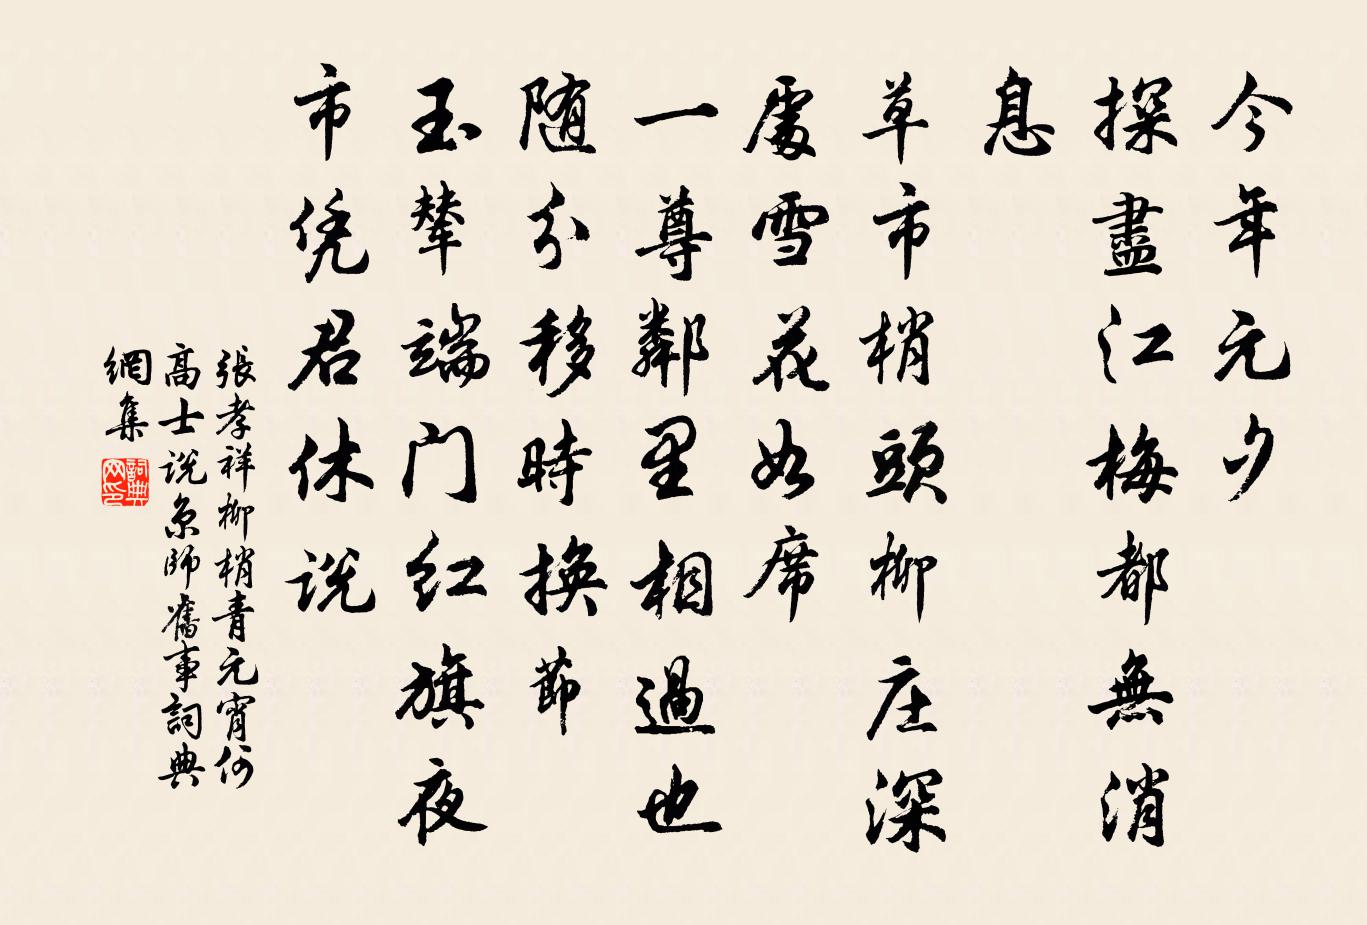 今年元夕
探盡江梅都無消
息
草市梢頭柳庄深
處雪花如席
一尊鄰里相過也
随分移時換節
玉輦端门红旗夜
市凭君休説
張孝祥柳梢青元宵何
高士説京師舊事詞典
網集
詞典网印